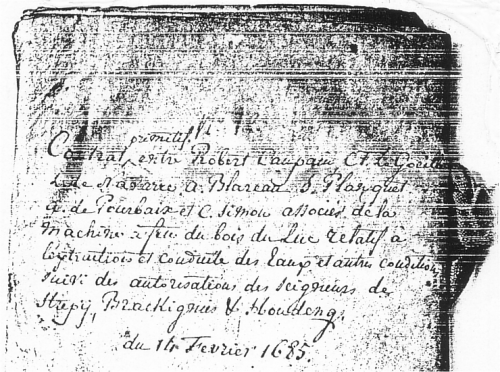 primitif
Contrat entre Robert Campain Ct. Le
A. Blareau J. Planquet
G. de Pourbaix et C. Simon associés de la
machine à feu du bois du Luc relatif à
l'extraction et conduite des Eaux et autres condition
suivi des autorisations des seigneurs de
Strepy, Brackignies & Houdeng.
du 14 Fevrier 1685.